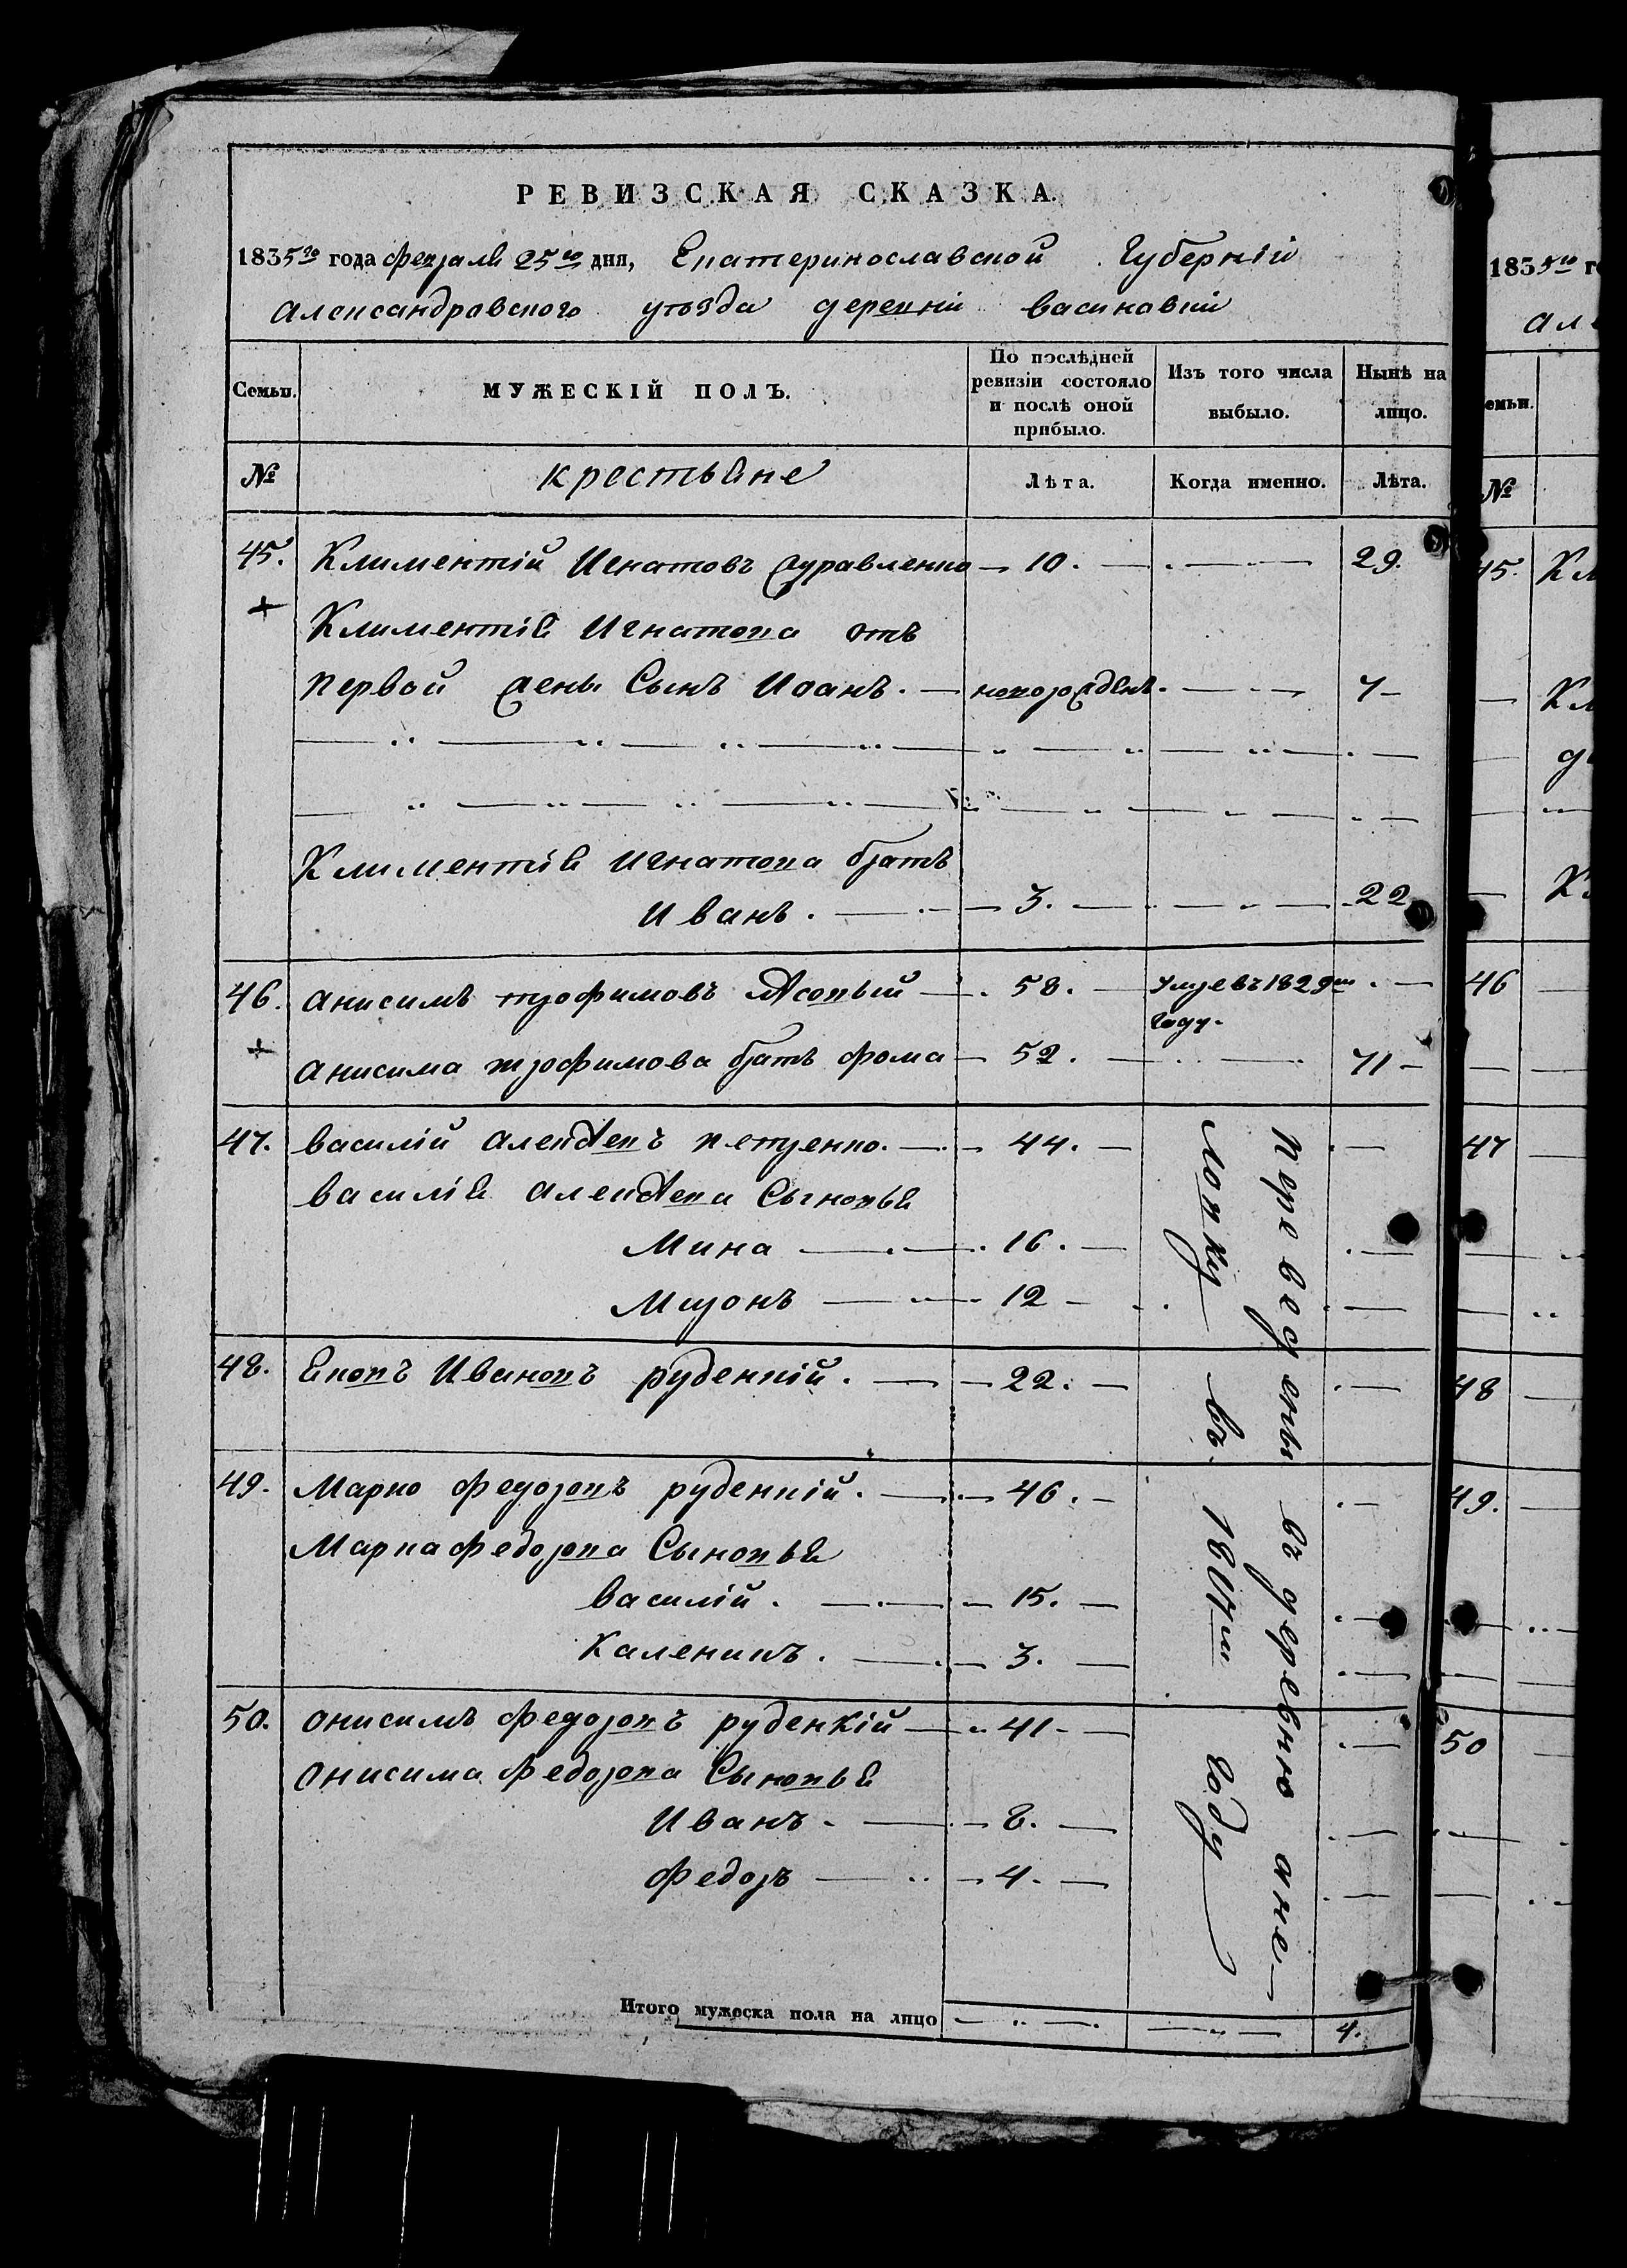 РЕВИЗСКАЯ СКАЗКА.
1835го года февраля 25го дня, Екатеринославской Губерніи
Александровскаго уѣзда деревни Васиковки
Семьи. МУЖЕСКІЙ ПОЛЪ. По послѣдней ревизіи состояло и послѣ оной прибыло. Изъ того числа выбыло. Нынѣ на лицо.
№ крестьяне Лѣта. Когда именно. Лѣта.
45. Климентій Игнатовъ Журавленко 10. 29.
Климентія Игнатова отъ
первой жены Сынъ Иоанъ. новорожденъ. 7
Климентія Игнатова братъ
Иванъ. 3. 22
46. Анисимъ трофимовъ 58. Умре въ 1829м
году.
Анисима трофимова братъ фома 52. 71
47. Василій Алексѣевъ Петренко. 44.
Василія Алексѣева Сыновья
Мина 16.
Миронъ 12
48. Иванъ руденкій. 22.
49. Марко федоровъ руденкій. 46.
Марка федорова Сыновья
Василій. 15.
Каленикъ. 3.
50. Онисимъ федоровъ руденкій 41
Онисима федорова Сыновья
Иванъ. 8.
федоръ 4.
переведены въ деревню ане
ловку въ 1817м году
Итого мужеска пола на лицо 4.
1835го г
але
емьи.
№
45. Кл
Кл
46
47
48
49.
50